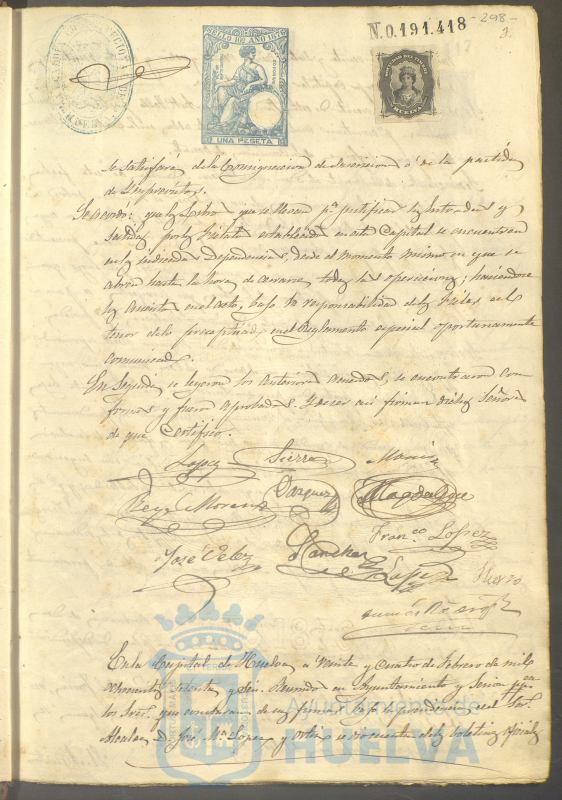 N.0.191.418
-298-
SELLO 11º AÑO 1876
UNA PESETA
HUELVA
se satisfará de la Consignacion de Inversion ó de la partida
de Imprevistos.
Se acordó: que los Libros que se llevan pª justificar las Entradas y
Salidas por los Fielatos establecidos en esta Capital se encuentren
en las indicadas Dependencias, desde el momento mismo en que se
abran hasta la hora de cerrarse todas las operaciones; haciendose
los asientos en el acto, bajo la responsabilidad de los Fieles al
tenor de lo preceptuado en el Reglamento especial oportunamente
comunicado.
En Seguida se leyeron los anteriores acuerdos, se encontraron con
formes y fueron aprobados. Y para así firman dichos Señores
de que Certifico.
Lopez Sierra
Rey Moreno Vazquez Magdalena
Franco Lopez
José Velez Sanchez Lopez
En la Capital de Huelva a Veinte y Cuatro de Febrero de mil
ochocientos setenta y seis. Reunidos en Ayuntamiento y Sesion
los Sres. que constarán de sus firmas bajo la presidencia del Sor.
Alcalde D. José Mª Lopez y Ortiz se dio cuenta de los boletines oficiales
Ayuntamiento de
HUELVA